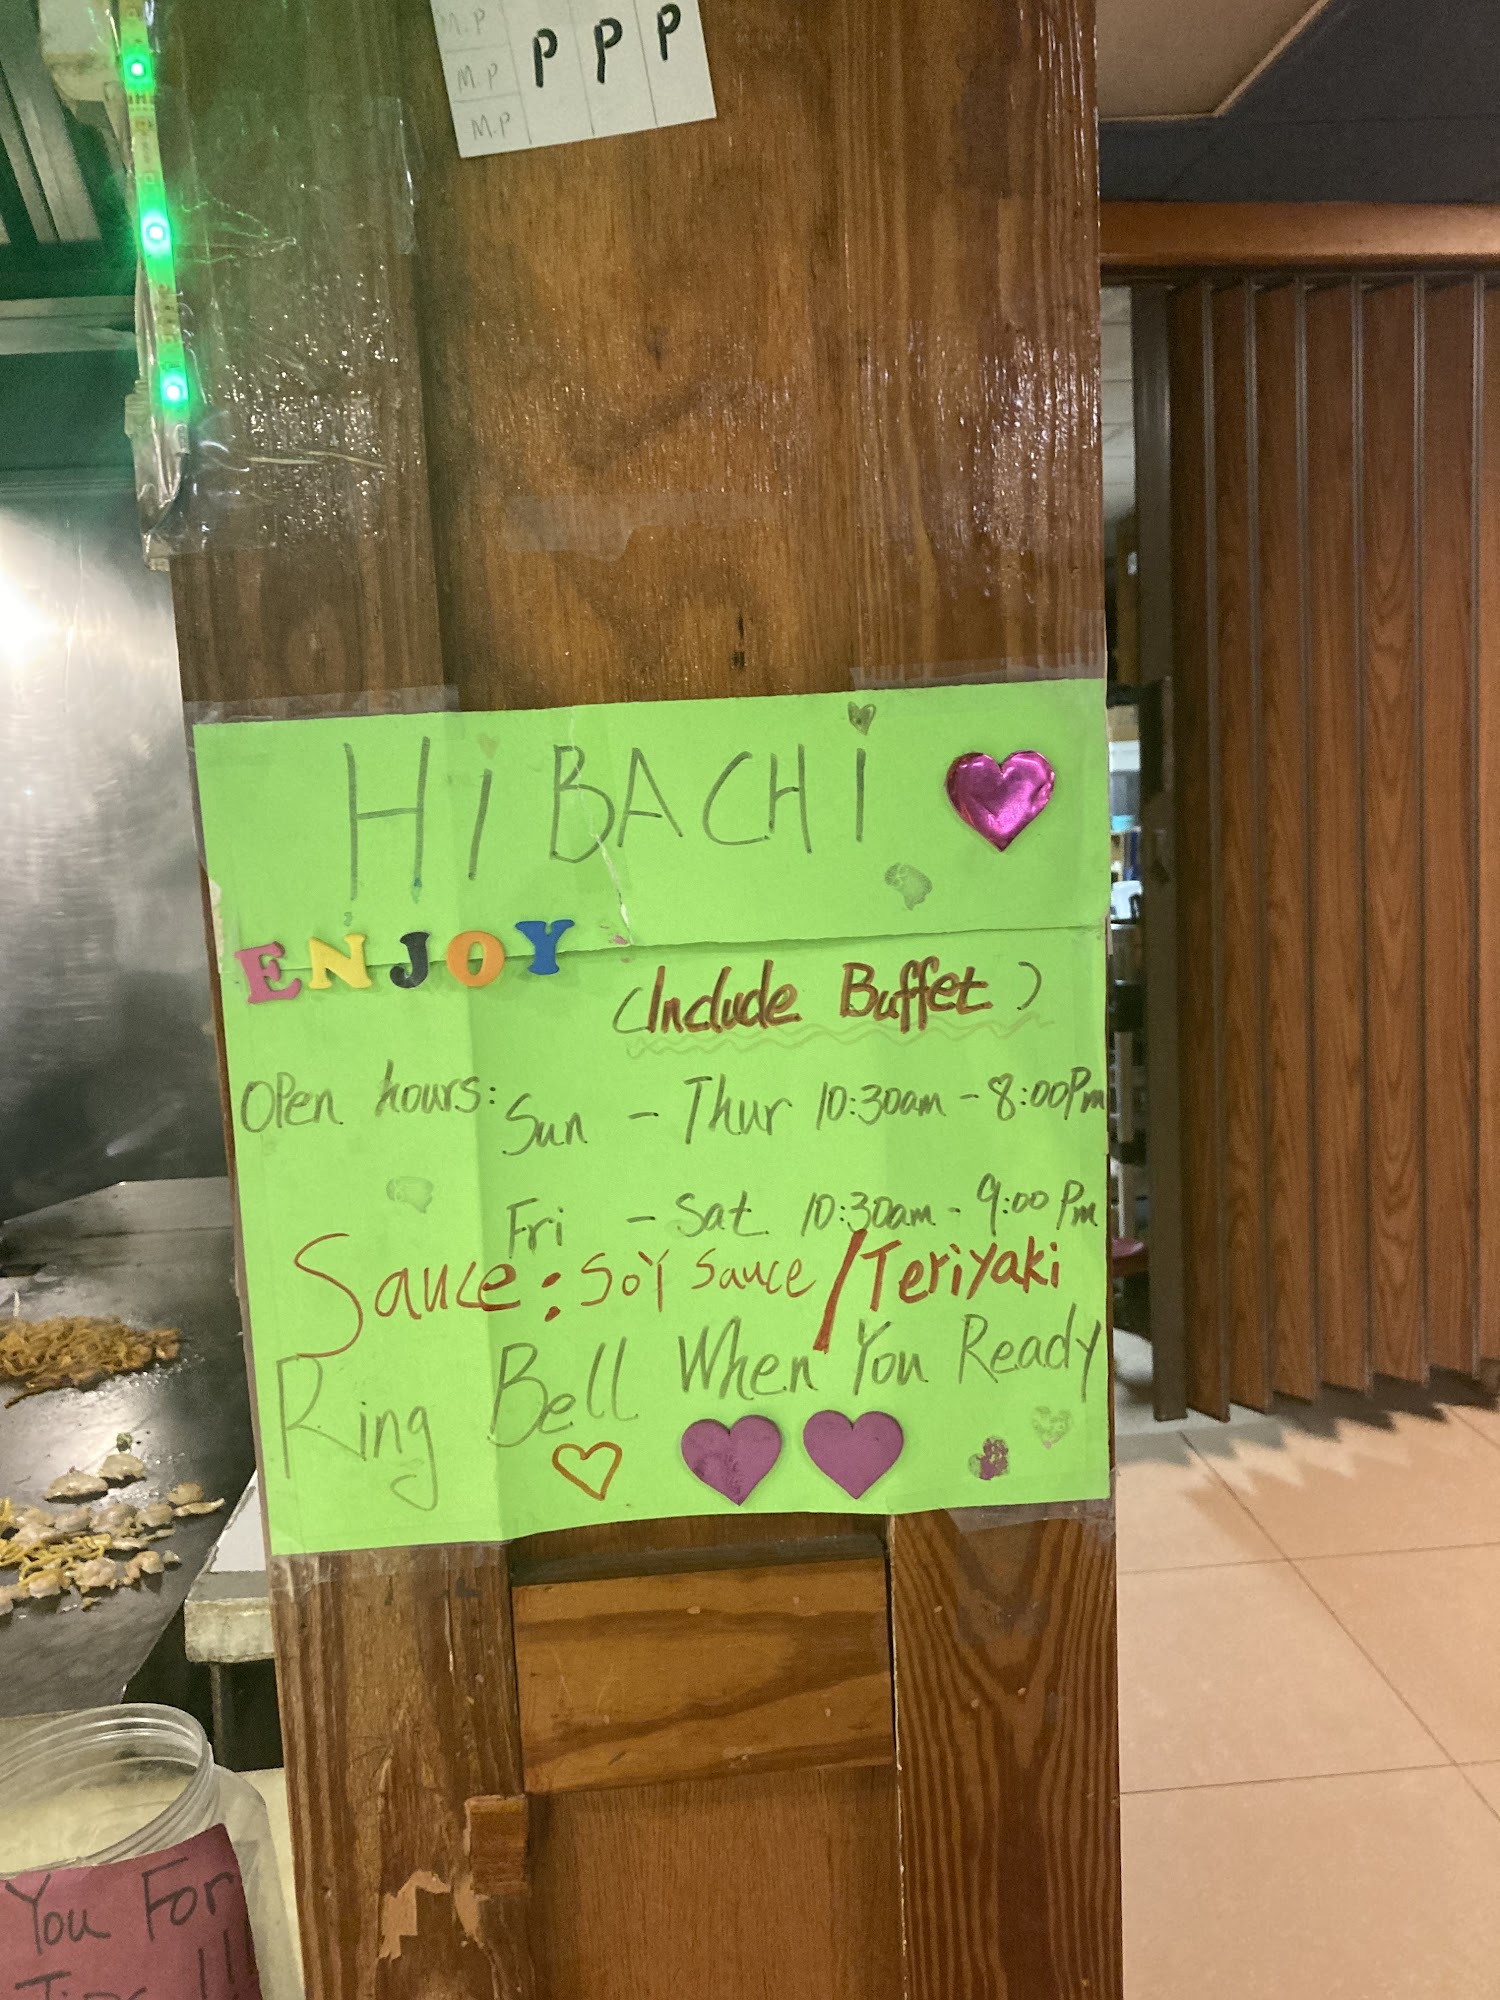 M.P
M.P P P P
M.P
HiBACHi
ENJOY
(Include Buffet)
Open hours: Sun - Thur 10:30am - 8:00Pm
Fri - Sat 10:30am - 9:00Pm
Sauce: Soy Sauce / Teriyaki
Ring Bell When You Ready
You For
Tips !!